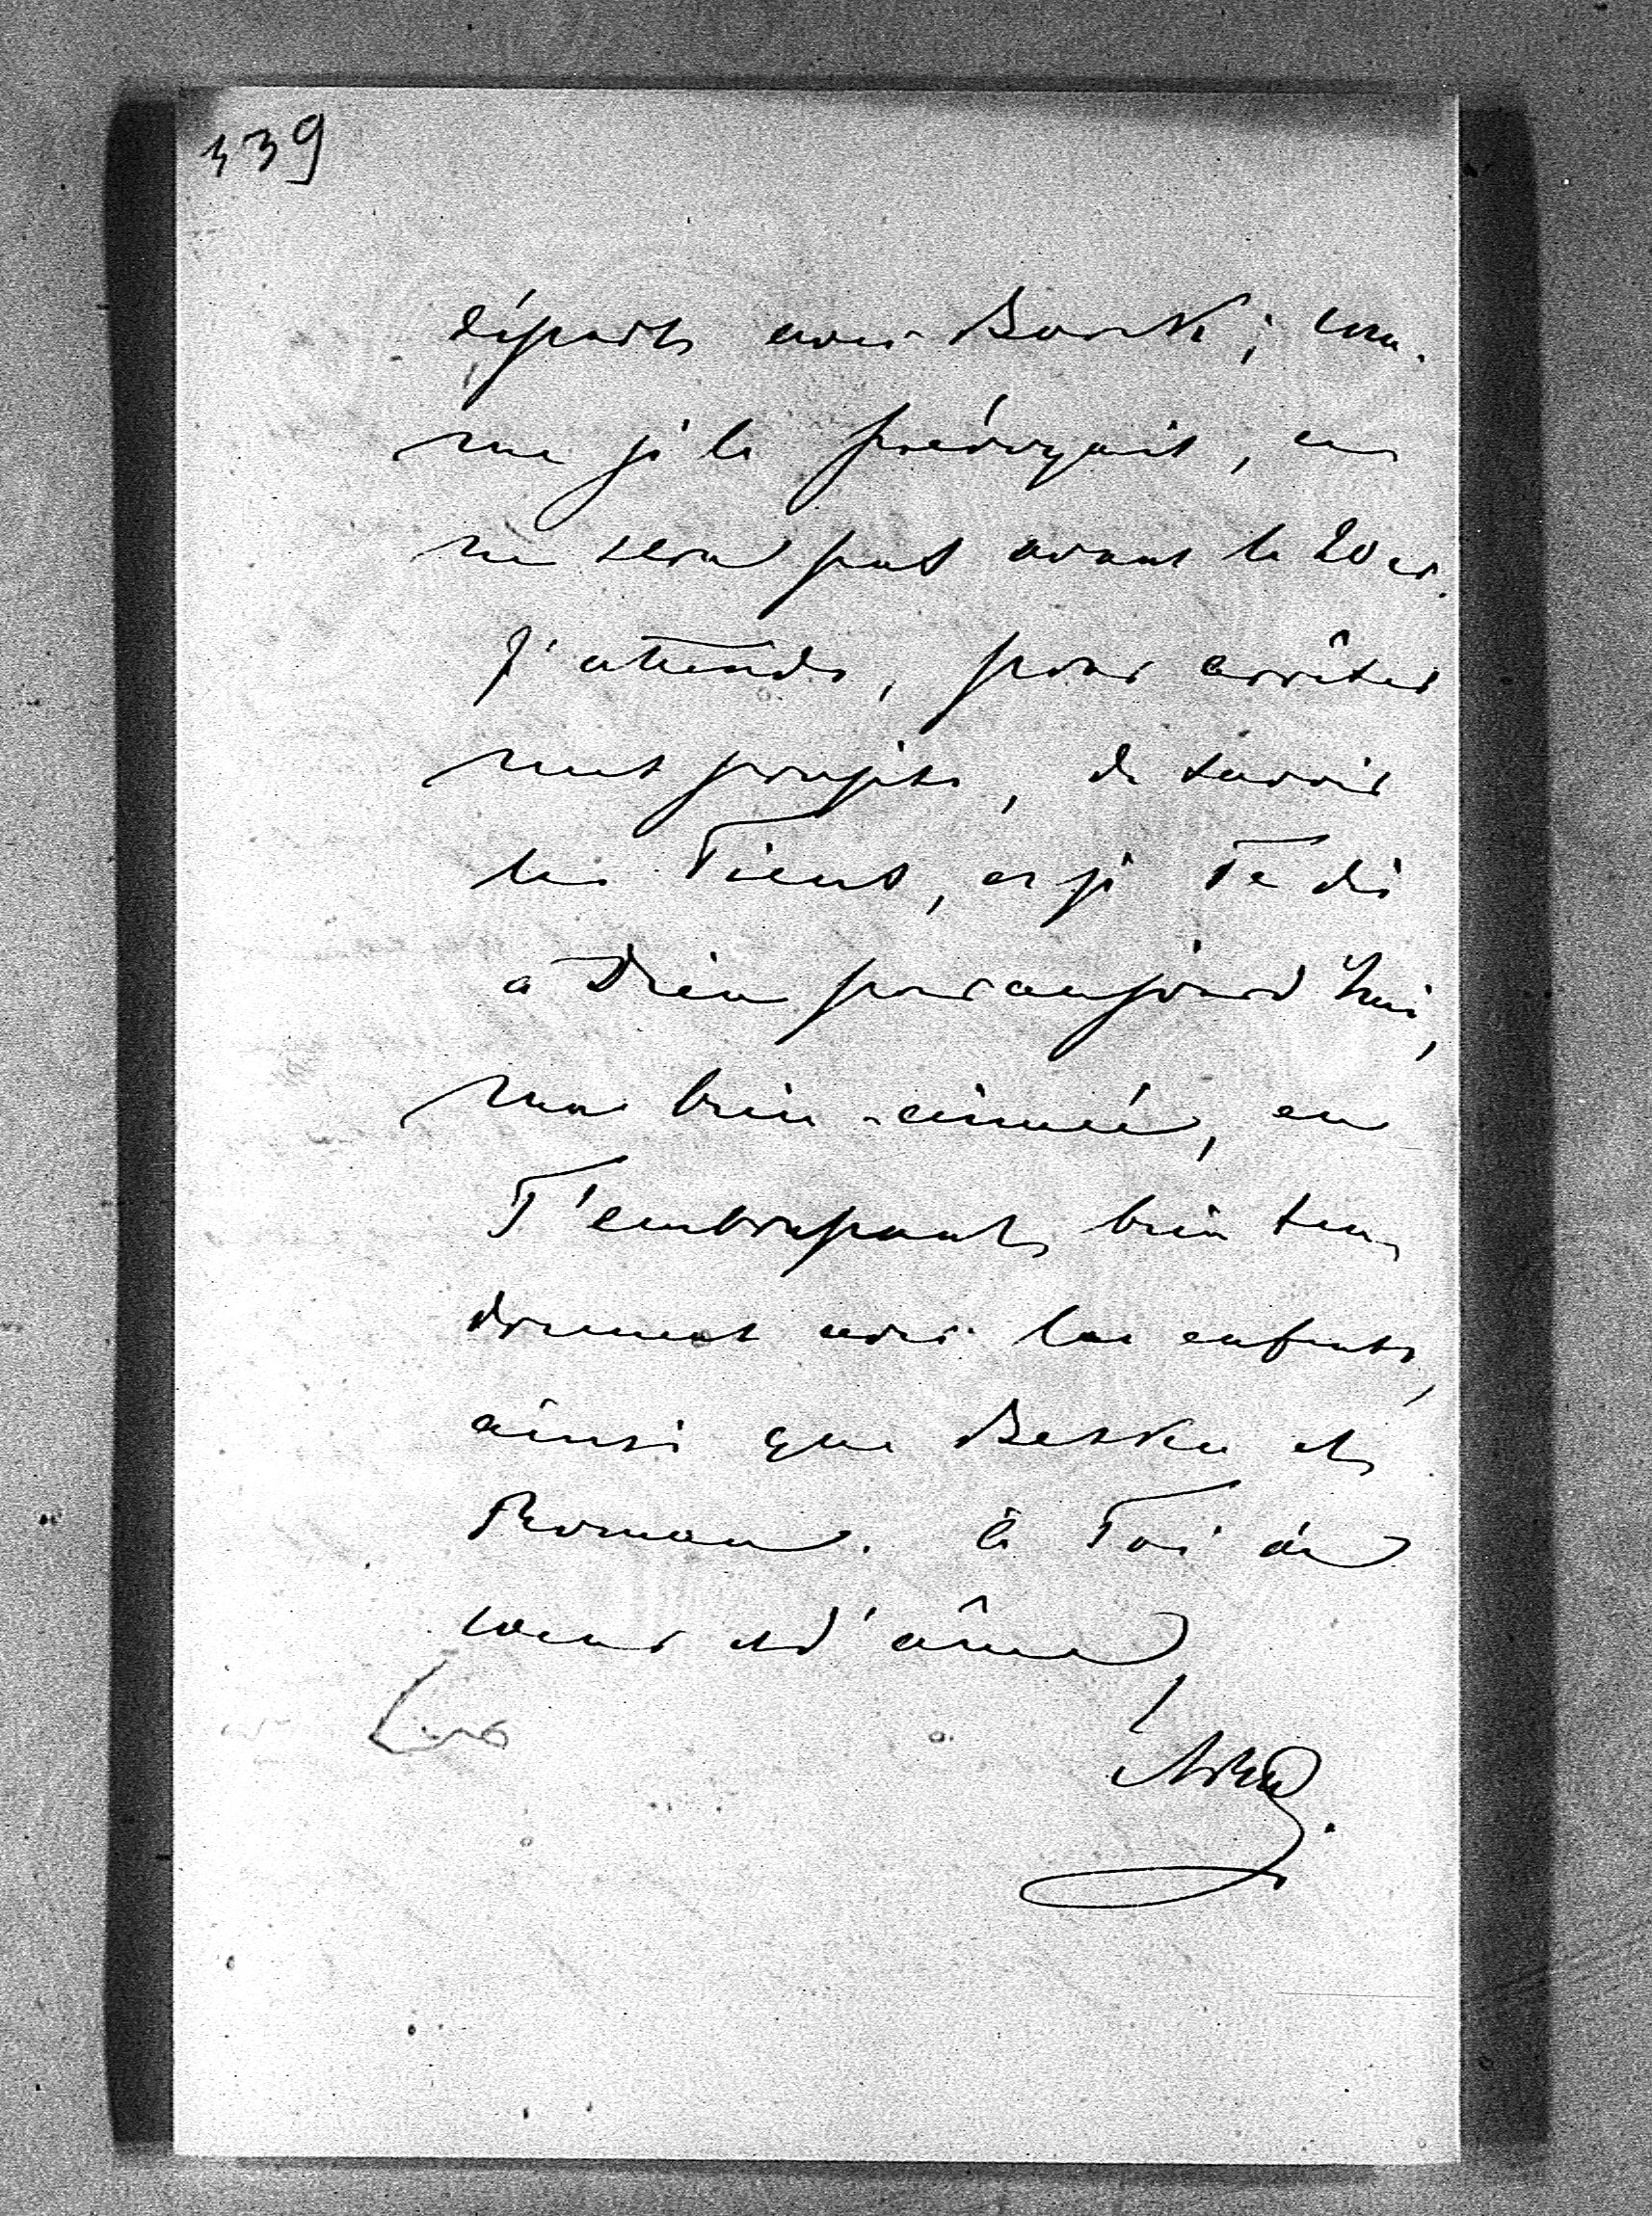 339
départ avec Bark; com-
me je le prévoyais, ce
ne sera pas avant le 20 ct.
J'attends, pour arrêter
mes projets, de savoir
les Tiens, et je Te dis
à Dieu pour aujourd'hui,
ma bien-aimée, en
T'embrassant bien ten-
drement avec les enfants,
ainsi que Beska et
Roman. à Toi de
coeur et d'âme,